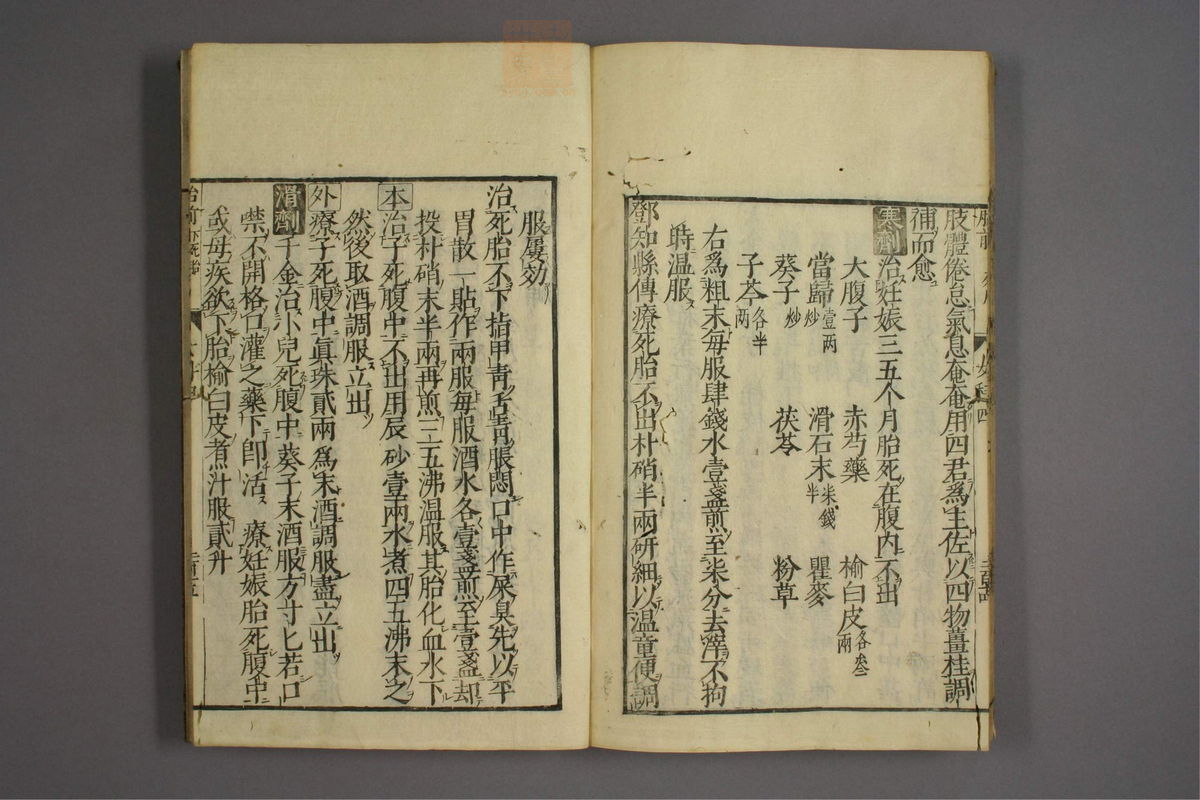 肢體倦怠氣息奄奄用四君爲主佐以四物薑桂調
補而愈
寒劑治妊娠三五个月胎死在腹內不出
大腹子 赤芍藥 榆白皮各叁兩
當歸壹兩炒 滑石末柒錢半 瞿麥
葵子炒 茯苓 粉草
子芩各半兩
右爲粗末每服肆錢水壹盞煎至柒分去滓不拘
時温服
鄧知縣傳療死胎不出朴硝半兩研細以温童便調
服屢効
治死胎不下指甲靑舌靑脹悶口中作屎臭先以平
胃散一貼作兩服每服酒水各壹盞煎至壹盞却
投朴硝末半兩再煎三五沸温服其胎化血水下
本治子死腹中不出用辰砂壹兩水煮四五沸末之
然後取酒調服立出
外療子死腹中眞珠貳兩爲末酒調服盡立出
滑劑千金治小兒死腹中葵子末酒服方寸匕若口
噤不開格口灌之藥下卽活 療妊娠胎死腹中
或母疾欲下胎榆白皮煮汁服貳升